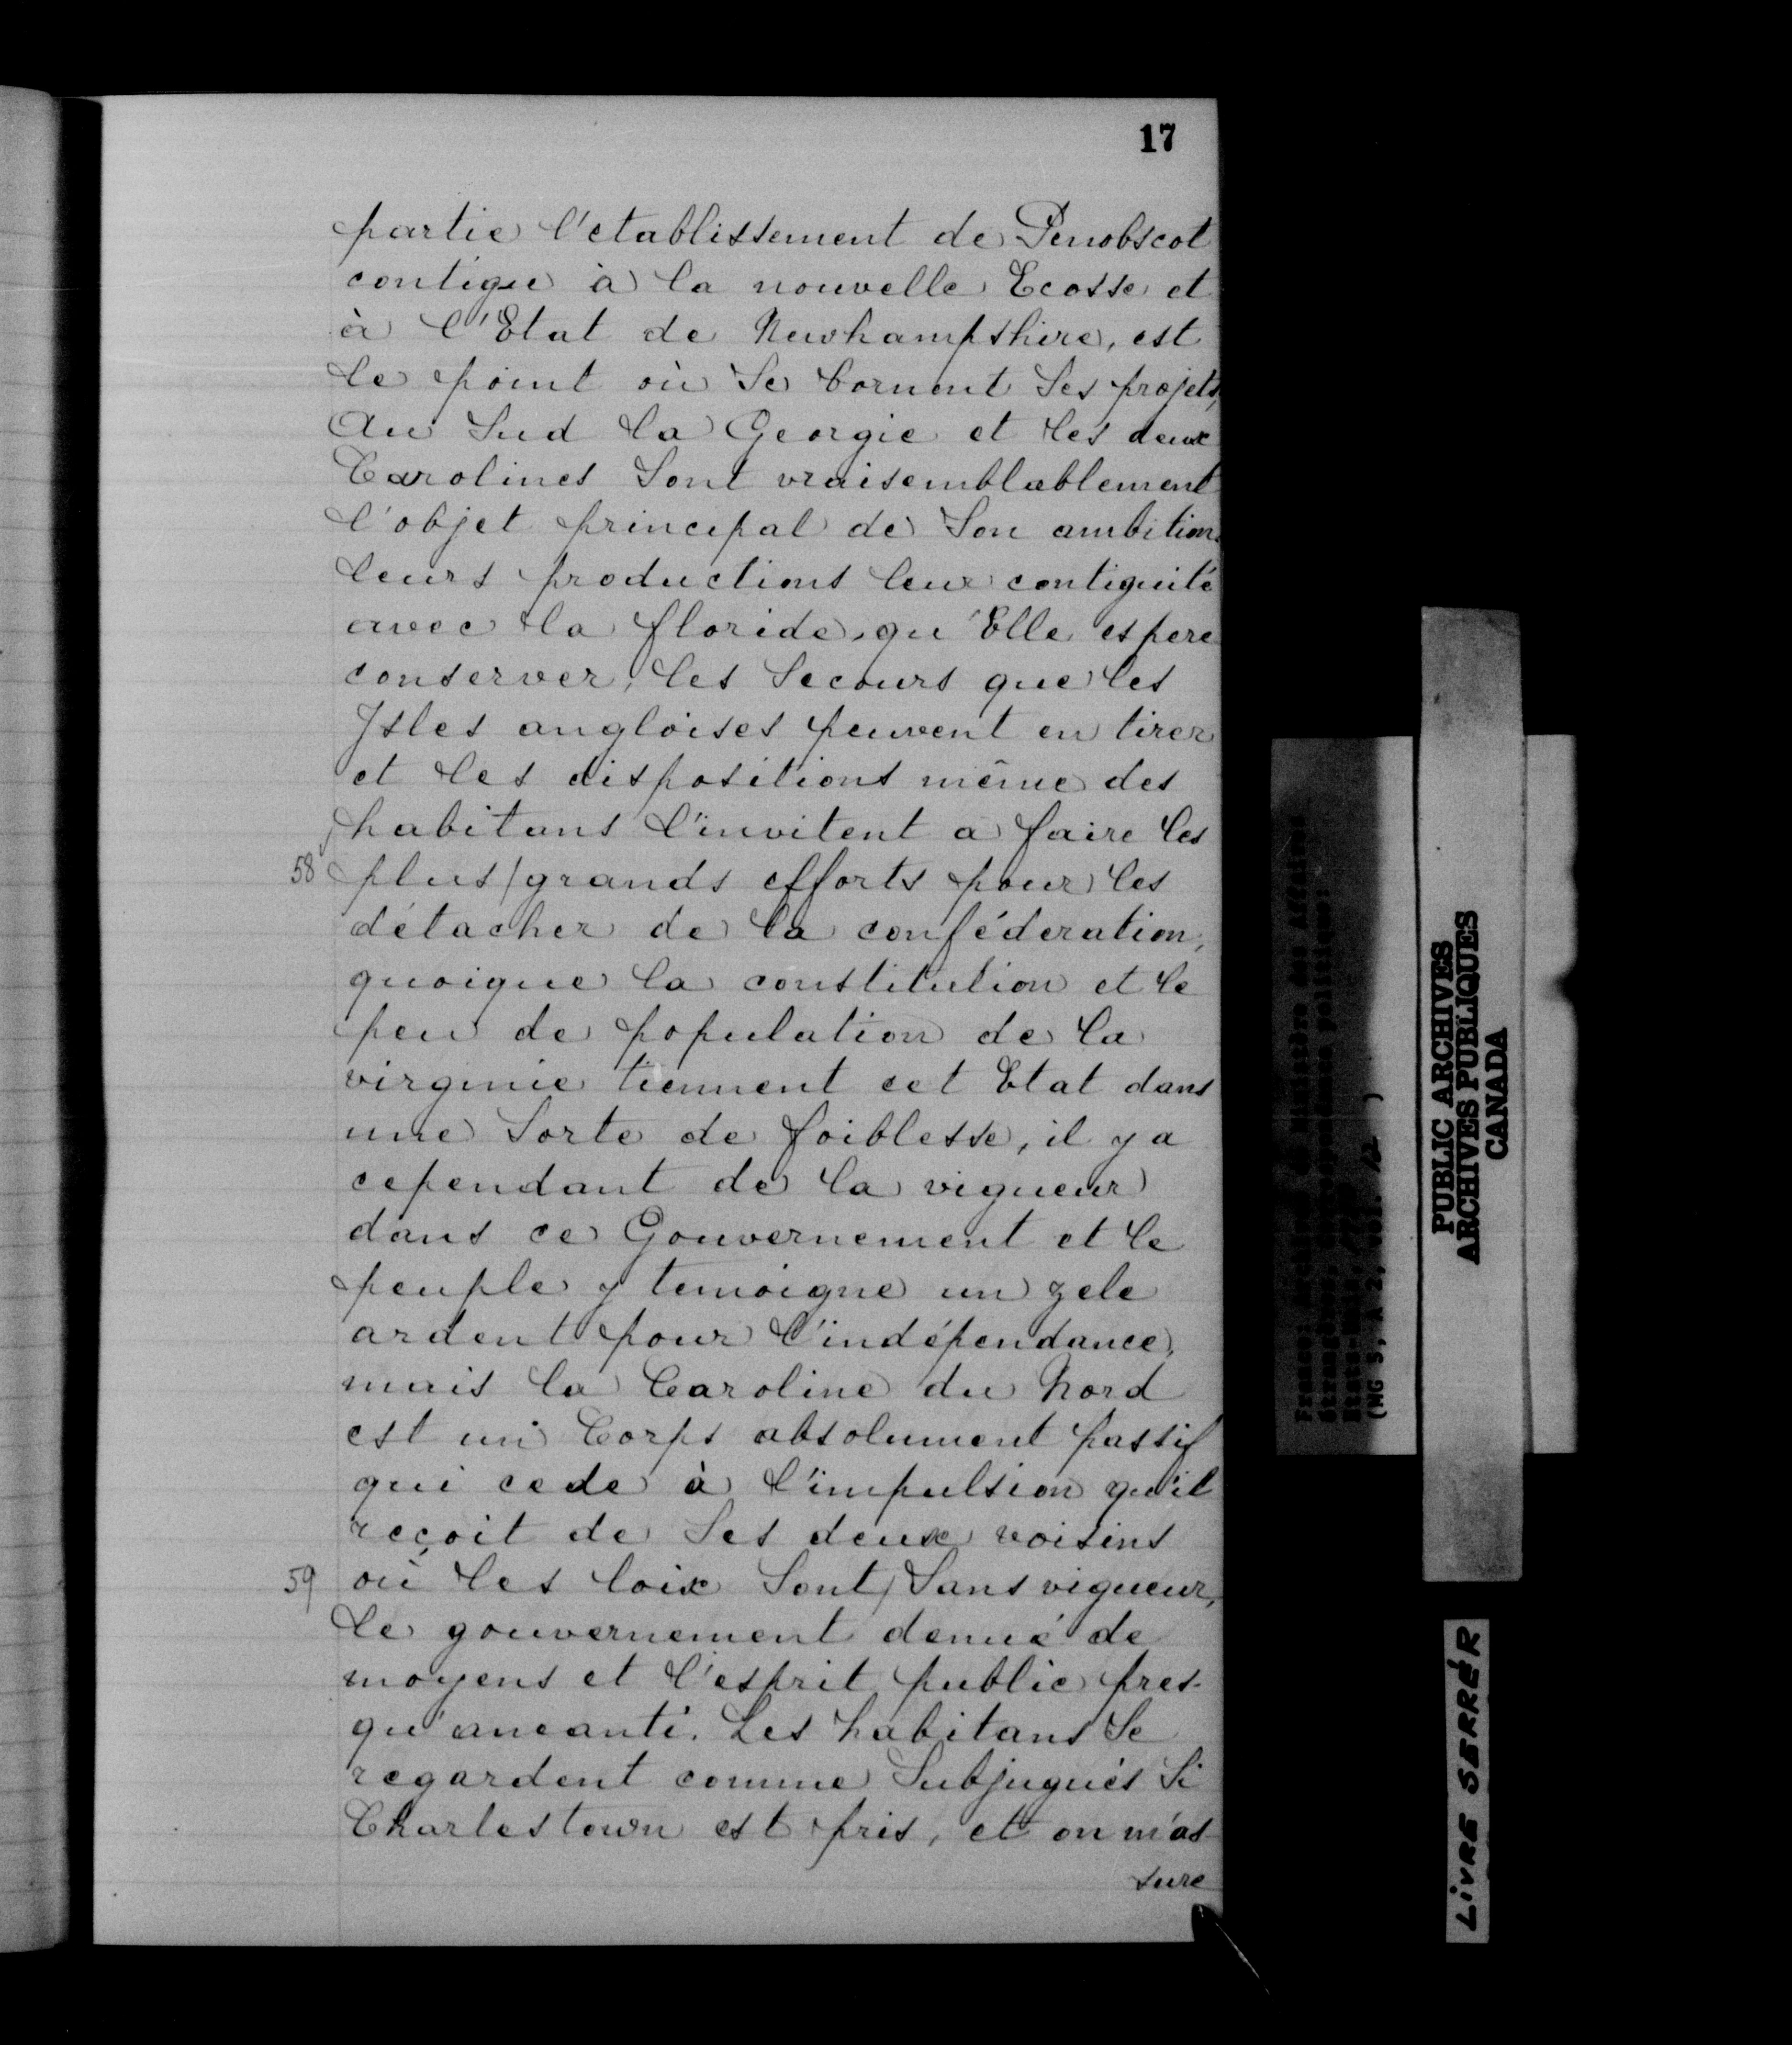 17
partie l'etablissement de Penobscot
contigu à la nouvelle Ecosse et
à l'Etat de Newhampshire, est
le point où se bornent ses projets,
Au Sud la Georgie et les deux
Carolines Sont vraisemblablement
l'objet principal de Son ambition.
leurs productions leur contiguité
avec la floride, qu'Elle espere
conserver, les Secours que les
Isles angloises peuvent en tirer
et les dispositions même des
habitans l'invitent a faire les
58 plus/grands efforts pour les
détacher de la conféderation,
quoique la constitution et le
peu de population de la
virginie tiennent cet Etat dans
une Sorte de foiblesse, il y a
cependant de la vigueur
dans ce Gouvernement et le
peuple y temoigne un zele
ardent pour l'indépendance,
mais la Caroline du Nord
est un Corps absolument passif
qui cede à l'impulsion qu'il
reçoit de Ses deux voisins
59 où les loix Sont/Sans vigueur,
le gouvernement denué de
moyens et l'esprit public pres-
qu'aneanti. Les habitans Se
regardent comme Subjugués Si
Charlestown est pris, et on m'as-
sure
(MG 5, A 2, 12)
PUBLIC ARCHIVES
ARCHIVES PUBLIQUES
CANADA
LIVRE SERRÉR